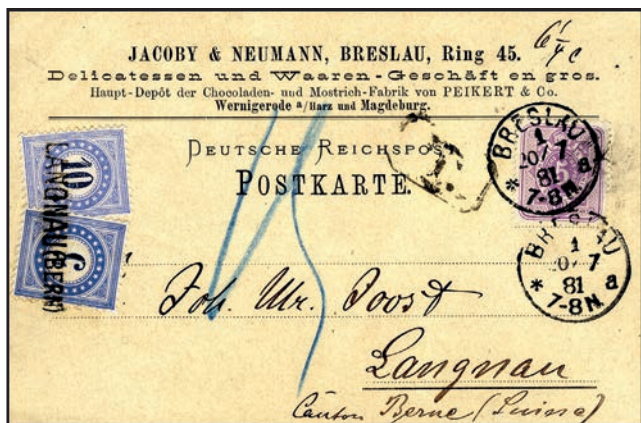 6 1/4 c
JACOBY & NEUMANN, BRESLAU, Ring 45.
Delicatessen und Waaren-Geschäft en gros.
Haupt-Depôt der Chocoladen- und Mostrich-Fabrik von PEIKERT & Co.
Wernigerode a/Harz und Magdeburg.
DEUTSCHE REICHSPOST
POSTKARTE.
T.
BRESLAU
1
20/7
81
* 7-8N. a
5
BRESLAU
1
20/7
81
* 7-8N. a
10
LANGNAU (BERN)
15
Joh. Ulr. Joost
Langnau
Canton Berne (Suisse)